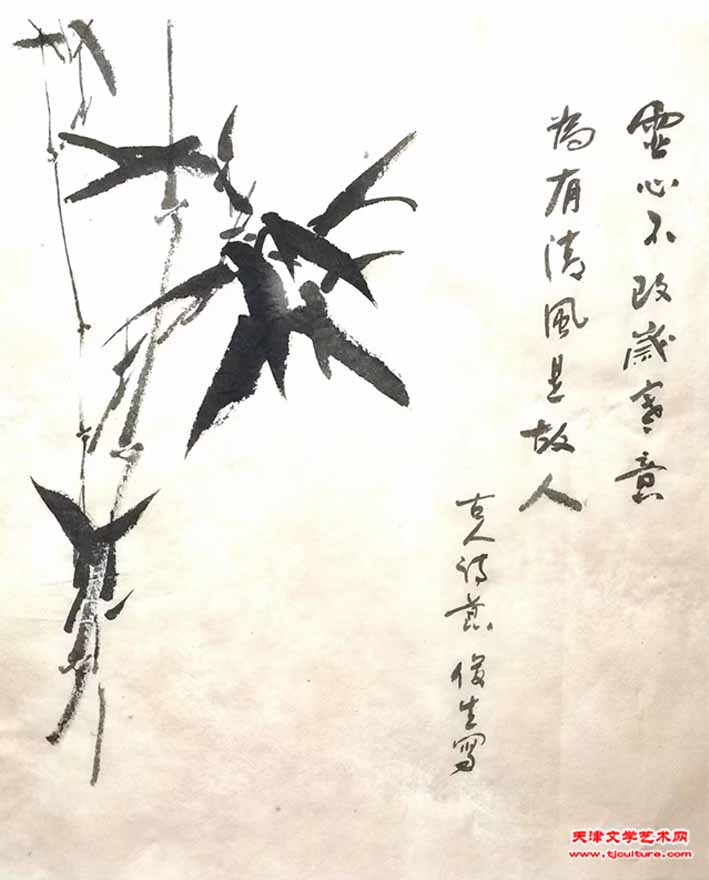 虛心不改歲寒意
為有清風是故人
古人詩意 俊生寫
天津文学艺术网
www.tjculture.com